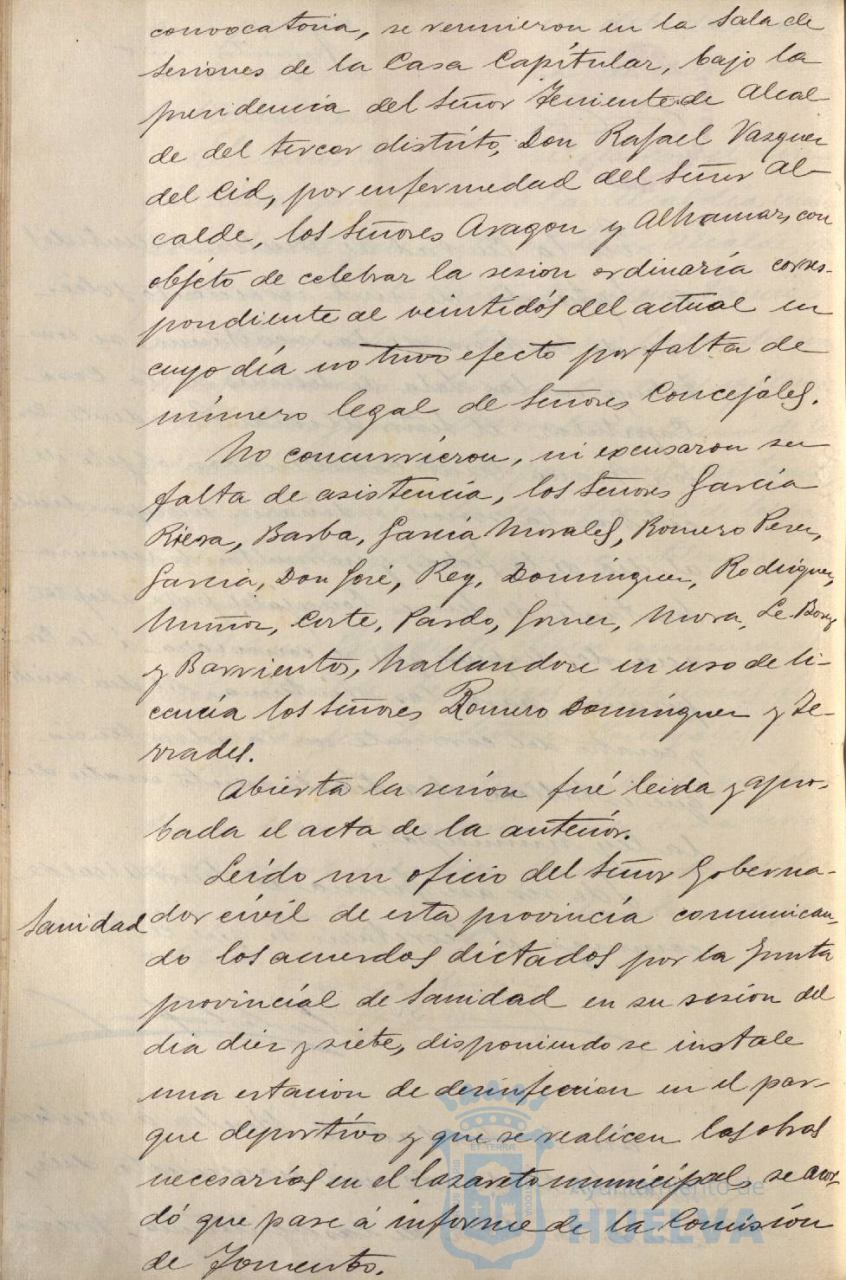 convocatoria, se reunieron en la Sala de
Sesiones de la Casa Capitular, bajo la
presidencia del Señor Teniente de Alcal
de del tercer distrito, Don Rafael Vazquez
del Cid, por enfermedad del Señor Al-
calde, los Señores Aragon y Alhamar, con
objeto de celebrar la sesion ordinaria corres-
pondiente al veintidós del actual en
cuyo día no tuvo efecto por falta de
número legal de Señores Concejales.
No concurrieron, ni excusaron su
falta de asistencia, los Señores Garcia
Riera, Barba, Garcia Morales, Romero Perez,
Garcia, Don José, Rey, Dominguez, Rodriguez,
Muñoz, Corte, Pardo, Gomez, Mora, Le-Bourg
y Barrientos, hallandose en uso de li-
cencia los Señores Romero Dominguez y Te-
rrades.
Abierta la sesión fué leida y apro-
bada el acta de la anterior.
Leido un oficio del Señor Goberna-
Sanidad
dor civil de esta provincia comunican-
do los acuerdos dictados por la Junta
provincial de Sanidad en su sesión del
dia diez y siete, disponiendo se instale
una estacion de desinfeccion en el par-
que deportivo y que se realicen las obras
necesarias en el lazareto municipal, se acor-
dó que pase á informe de la Comisión
de Fomento.
Ayuntamiento de
HUELVA